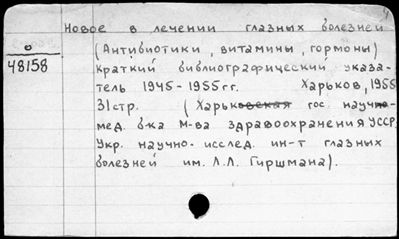 Новое в лечении глазных болезней
О
48158
(Антибиотики, витамины, гормоны)
Краткий библиографический указа-
тель 1945-1955 гг. Харьков, 1955
31 стр. (Харьковская гос. научно-
мед. б-ка М-ва здравоохранения УССР,
Укр. научно-исслед. ин-т глазных
болезней им. Л.Л. Гиршмана).